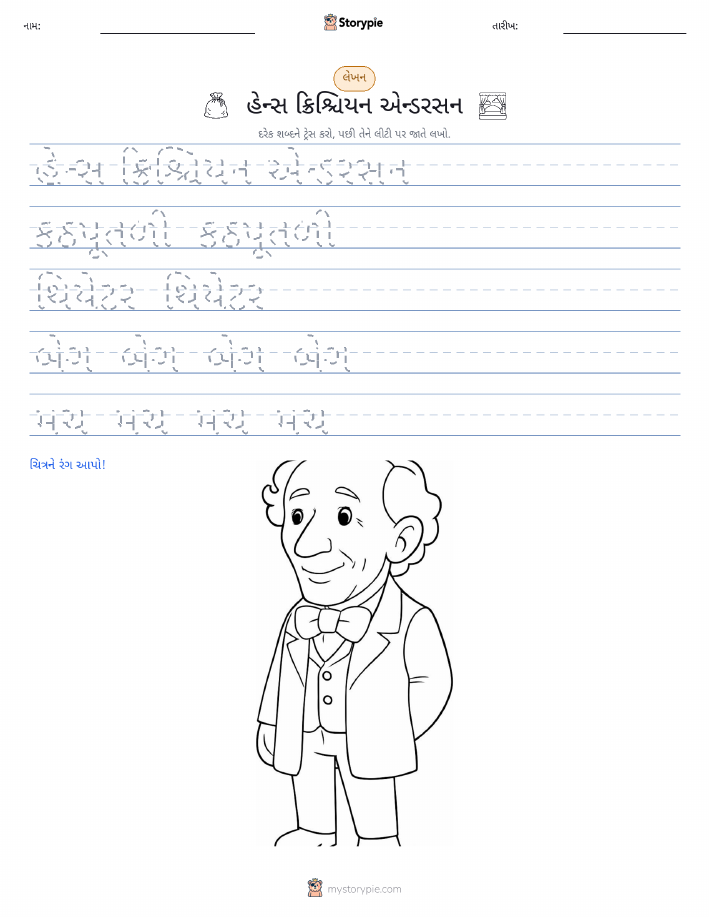 નામ:
Storypie
તારીખ:
લેખન
હેન્સ ક્રિશ્ચિયન એન્ડરસન
દરેક શબ્દને ટ્રેસ કરો, પછી તેને લીટી પર જાતે લખો.
હેન્સ ક્રિશ્ચિયન એન્ડરસન
કઠપૂતળી કઠપૂતળી
થિયેટર થિયેટર
બેગ બેગ બેગ બેગ
મંચ મંચ મંચ મંચ
ચિત્રને રંગ આપો!
mystorypie.com